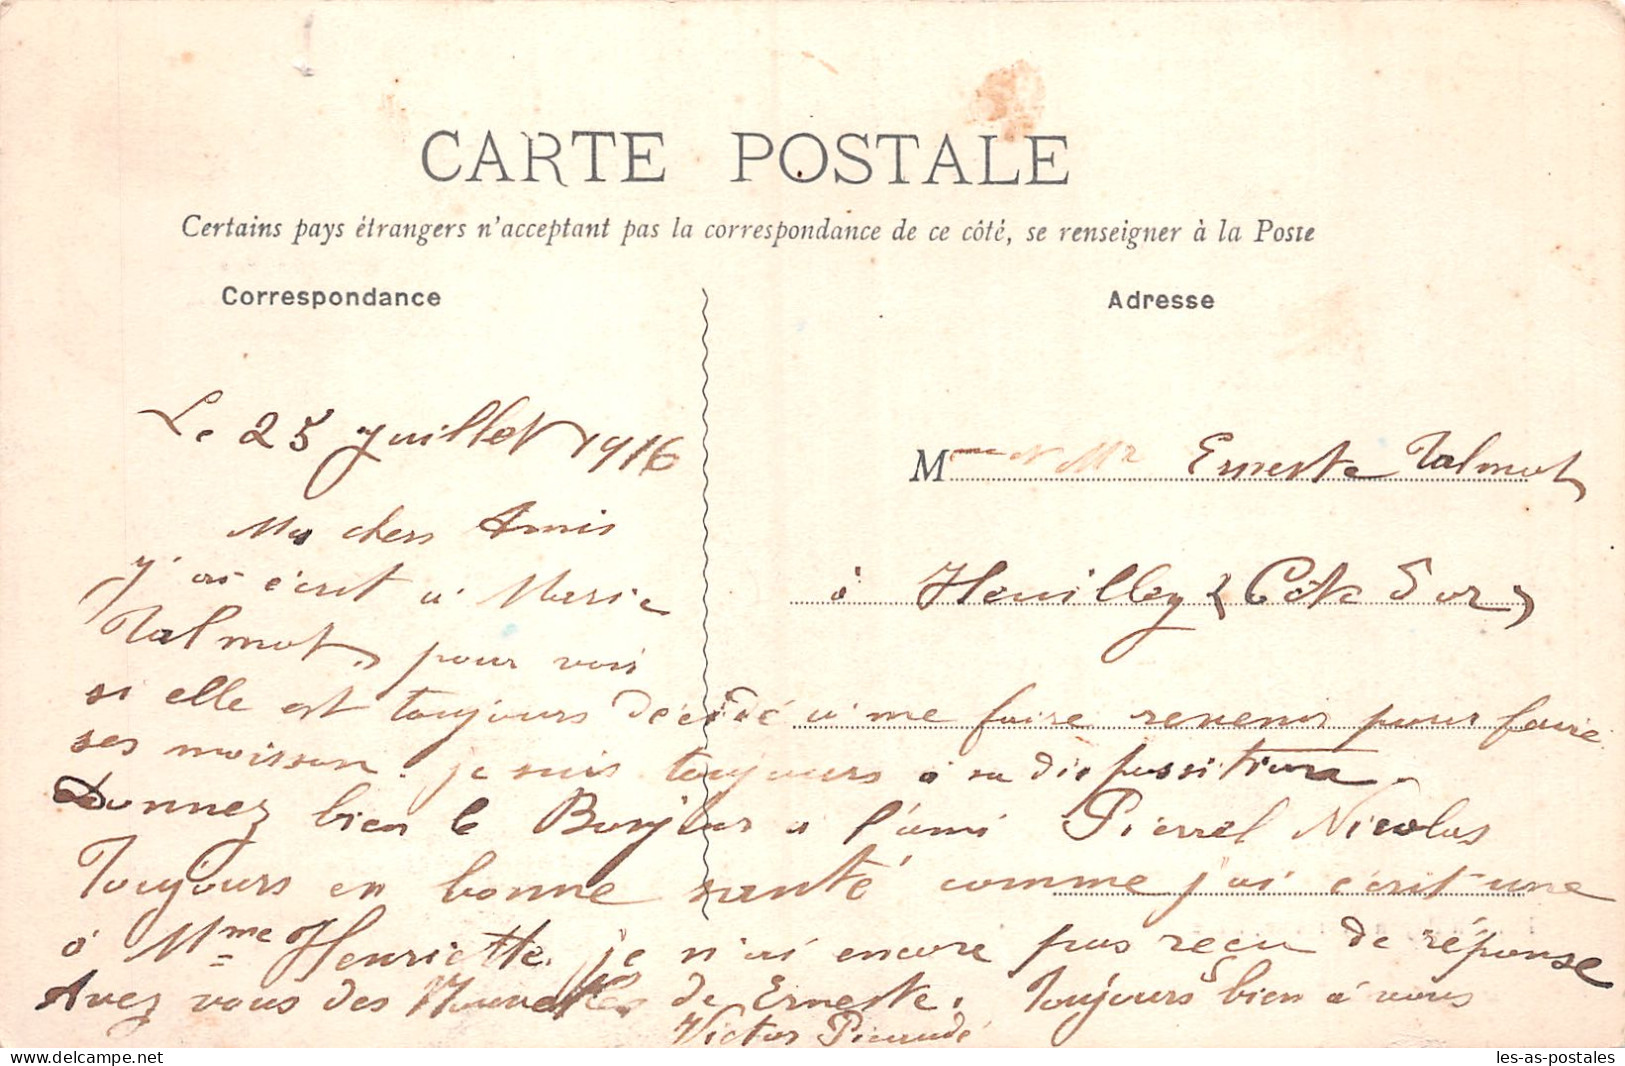 CARTE POSTALE
Certains pays étrangers n'acceptant pas la correspondance de ce côté, se renseigner à la Poste
Correspondance
Adresse
Le 25 Juillet 1916
Mes chers Amis
j'ai écrit a Marie
Talmot, pour voir
si elle est toujours décidé a me faire revenir pour faire
ses moisson. je suis toujours a sa disposition.
Donnez bien le Bonjour a l'ami Pierrel Nicolas
Toujours en bonne santé comme j'ai écrit une
a Mme Henriette. je n'ai encore pas reçu de réponse
Avez vous des Nouvelles de Erneste. Toujours bien a vous
Victor
Mme et Mr Erneste Talmot
à Heuilley (Côte d'or)
les-as-postales
www.delcampe.net